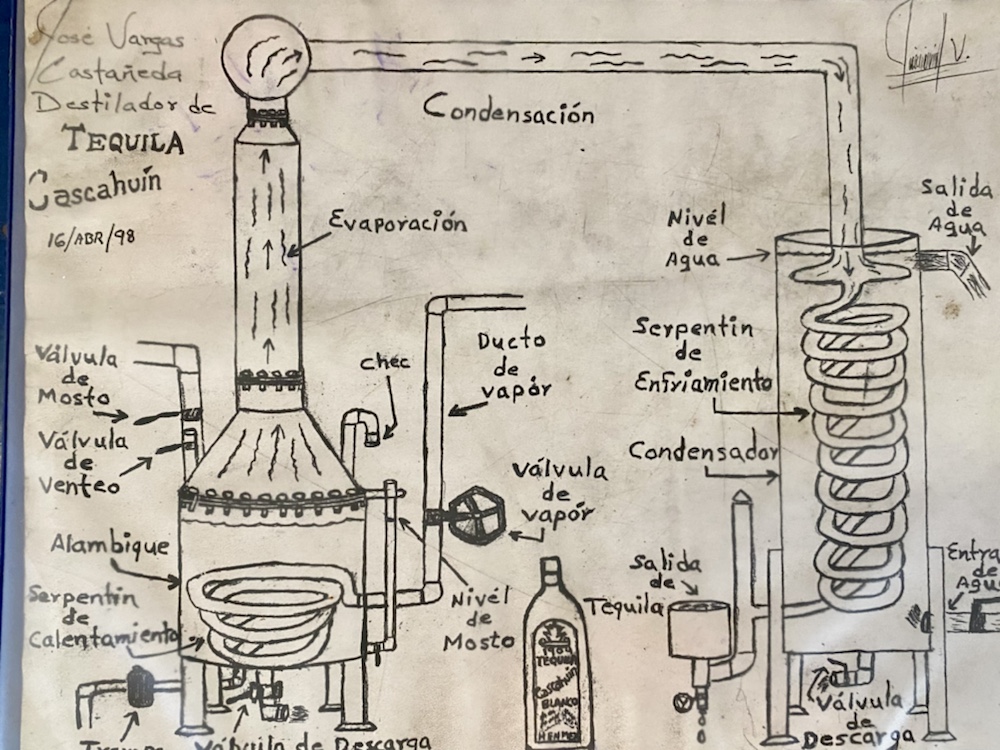 José Vargas
Castañeda
Destilador de
TEQUILA
Cascahuín
16/ABR/98
V.
Condensación
Evaporación
Nivél
de
Agua
Salida
de
Agua
Válvula
de
Mosto
Válvula
de
Venteo
chec
Ducto
de
vapór
Serpentin
de
Enfriamiento
Condensador
Válvula
de
vapór
Alambique
Serpentin
de
Calentamiento
Nivél
de
Mosto
Salida
de
Tequila
Entra
de
Agua
1904
TEQUILA
Cascahuín
BLANCO
Válvula
de
Descarga
Válvula de Descarga